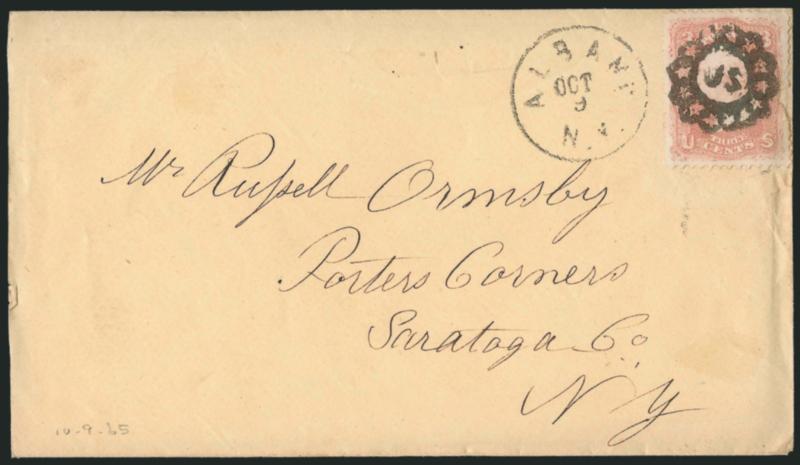 ALBANY
OCT
9
N.Y.
US
U THREE S
CENTS
Mr Russell Ormsby
Porters Corners
Saratoga Co.
N Y
10-9-65